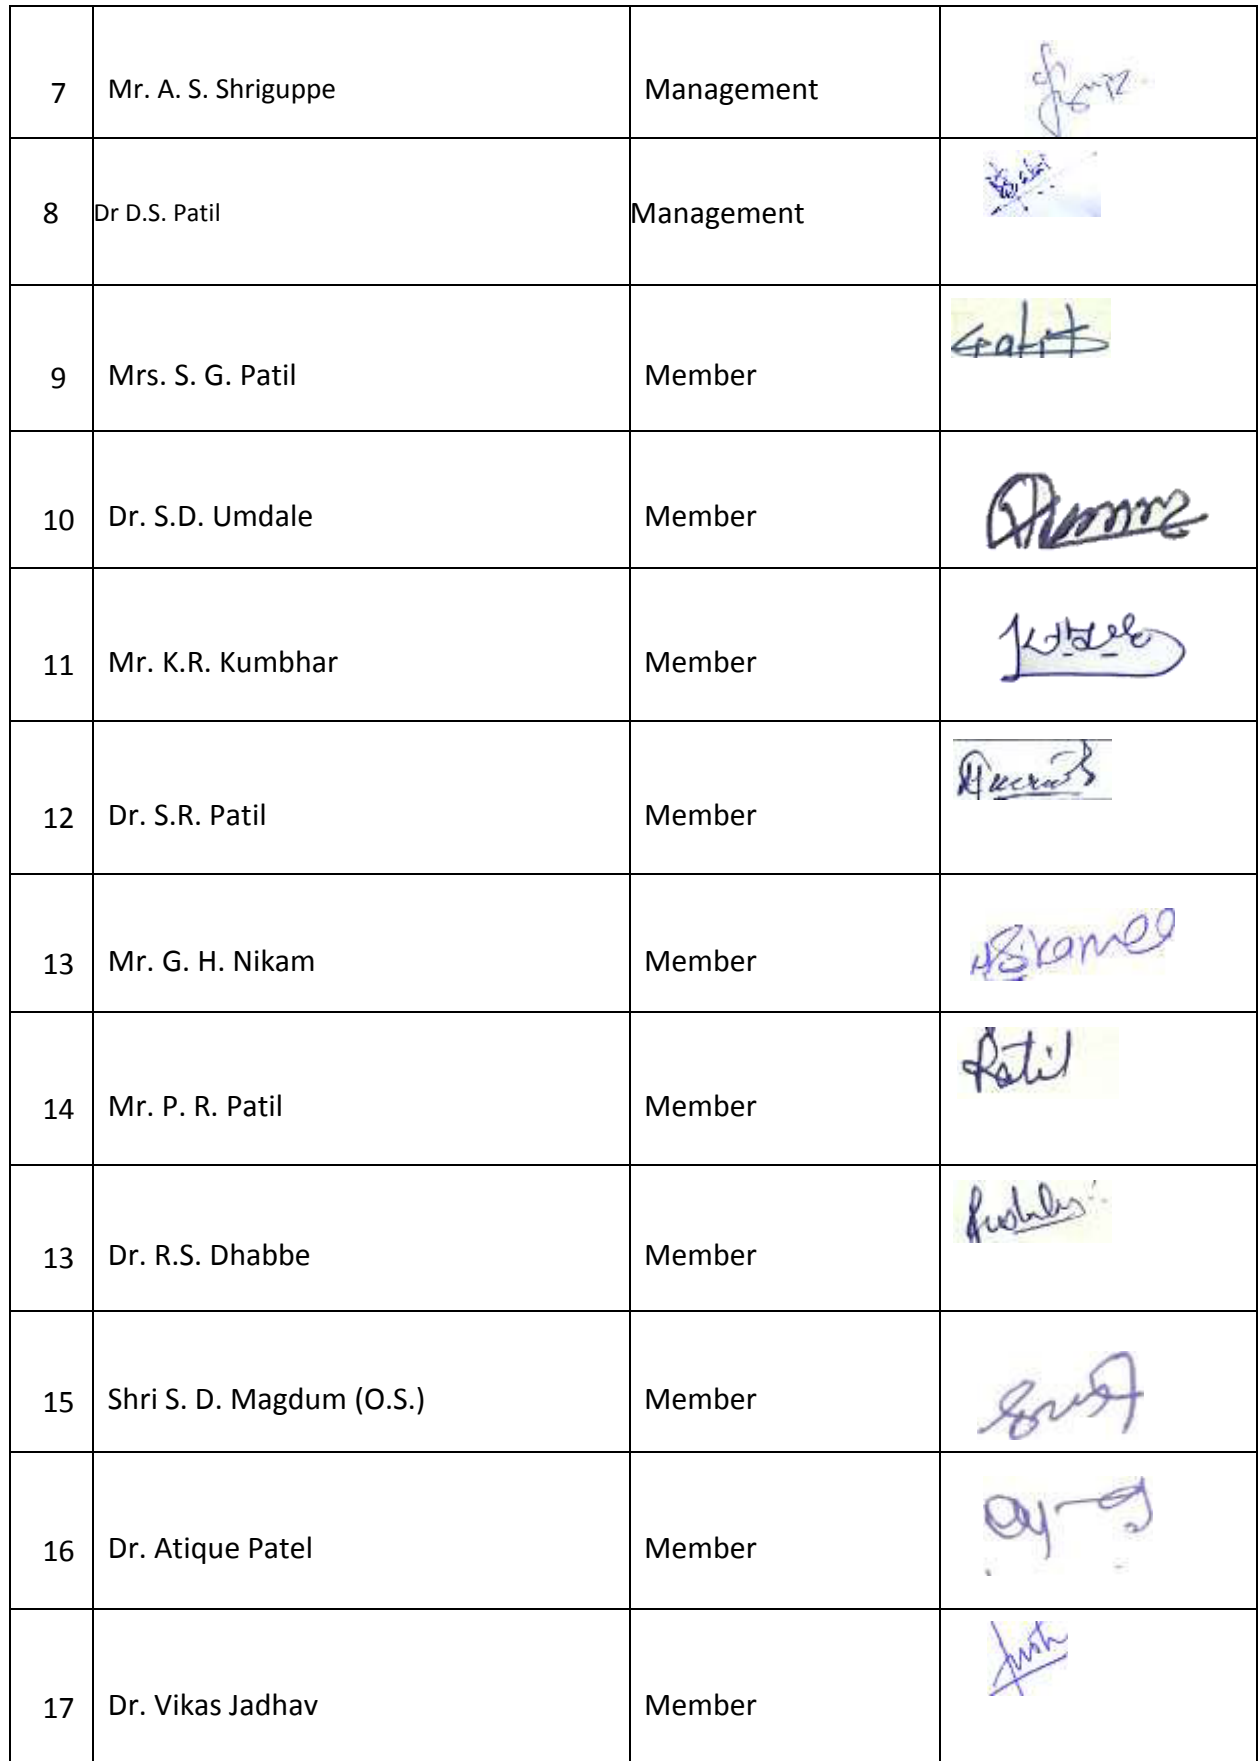 7 Mr. A. S. Shriguppe Management
8 Dr D.S. Patil Management
9 Mrs. S. G. Patil Member
10 Dr. S.D. Umdale Member
11 Mr. K.R. Kumbhar Member
12 Dr. S.R. Patil Member
13 Mr. G. H. Nikam Member
14 Mr. P. R. Patil Member Patil
13 Dr. R.S. Dhabbe Member
15 Shri S. D. Magdum (O.S.) Member
16 Dr. Atique Patel Member
17 Dr. Vikas Jadhav Member